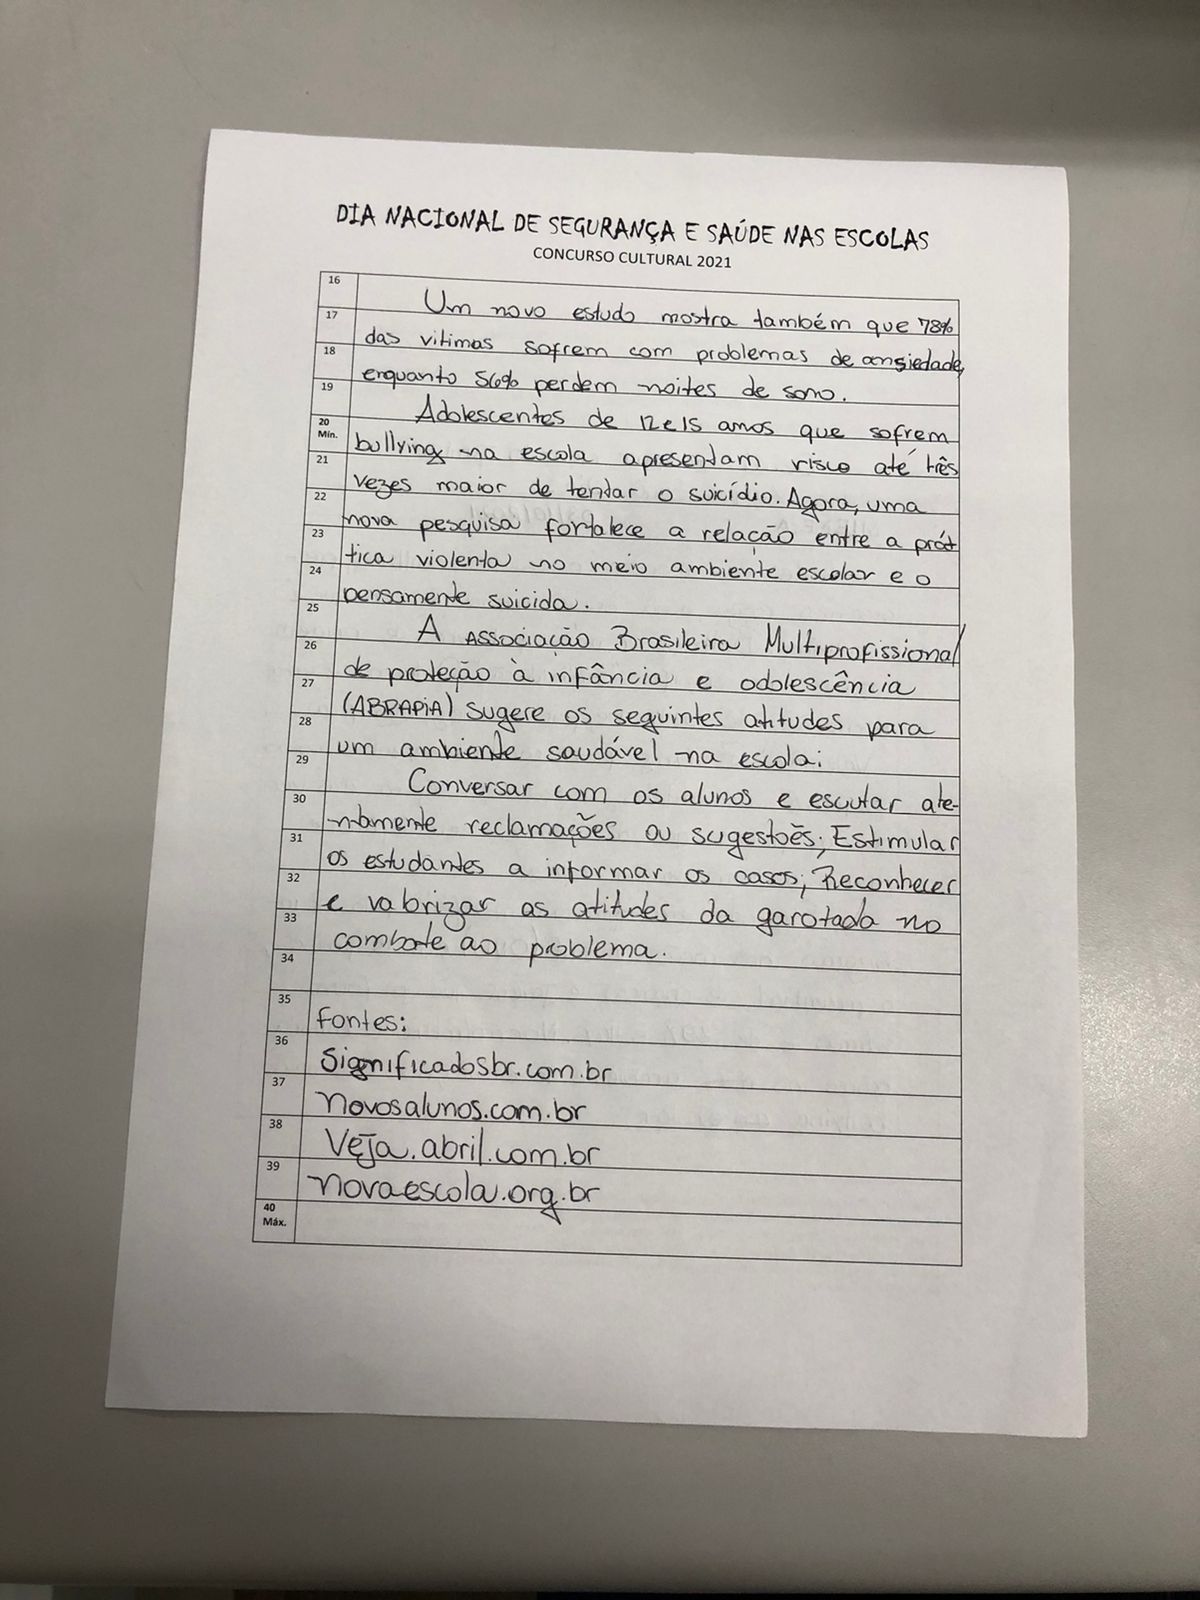 DIA NACIONAL DE SEGURANÇA E SAÚDE NAS ESCOLAS
CONCURSO CULTURAL 2021
16 Um novo estudo mostra também que 78%
17 das vitimas sofrem com problemas de ansiedade,
18 enquanto 56% perdem noites de sono.
19 Adolescentes de 12 e 15 anos que sofrem
20 Mín. bullying na escola apresentam risco até três
21 vezes maior de tentar o suicídio. Agora, uma
22 nova pesquisa fortalece a relação entre a prát
23 tica violenta no meio ambiente escolar e o
24 pensamente suicida.
25 A Associação Brasileira Multiprofissional
26 de proteção à infância e adolescência
27 (ABRAPIA) sugere os seguintes atitudes para
28 um ambiente saudável na escola:
29 Conversar com os alunos e escutar ate-
30 ntamente reclamações ou sugestões; Estimular
31 os estudantes a informar os casos; Reconhecer
32 e valorizar as atitudes da garotada no
33 combate ao problema.
34
35 Fontes:
36 Significadosbr.com.br
37 Novosalunos.com.br
38 Veja.abril.com.br
39 Novaescola.org.br
40 Máx.